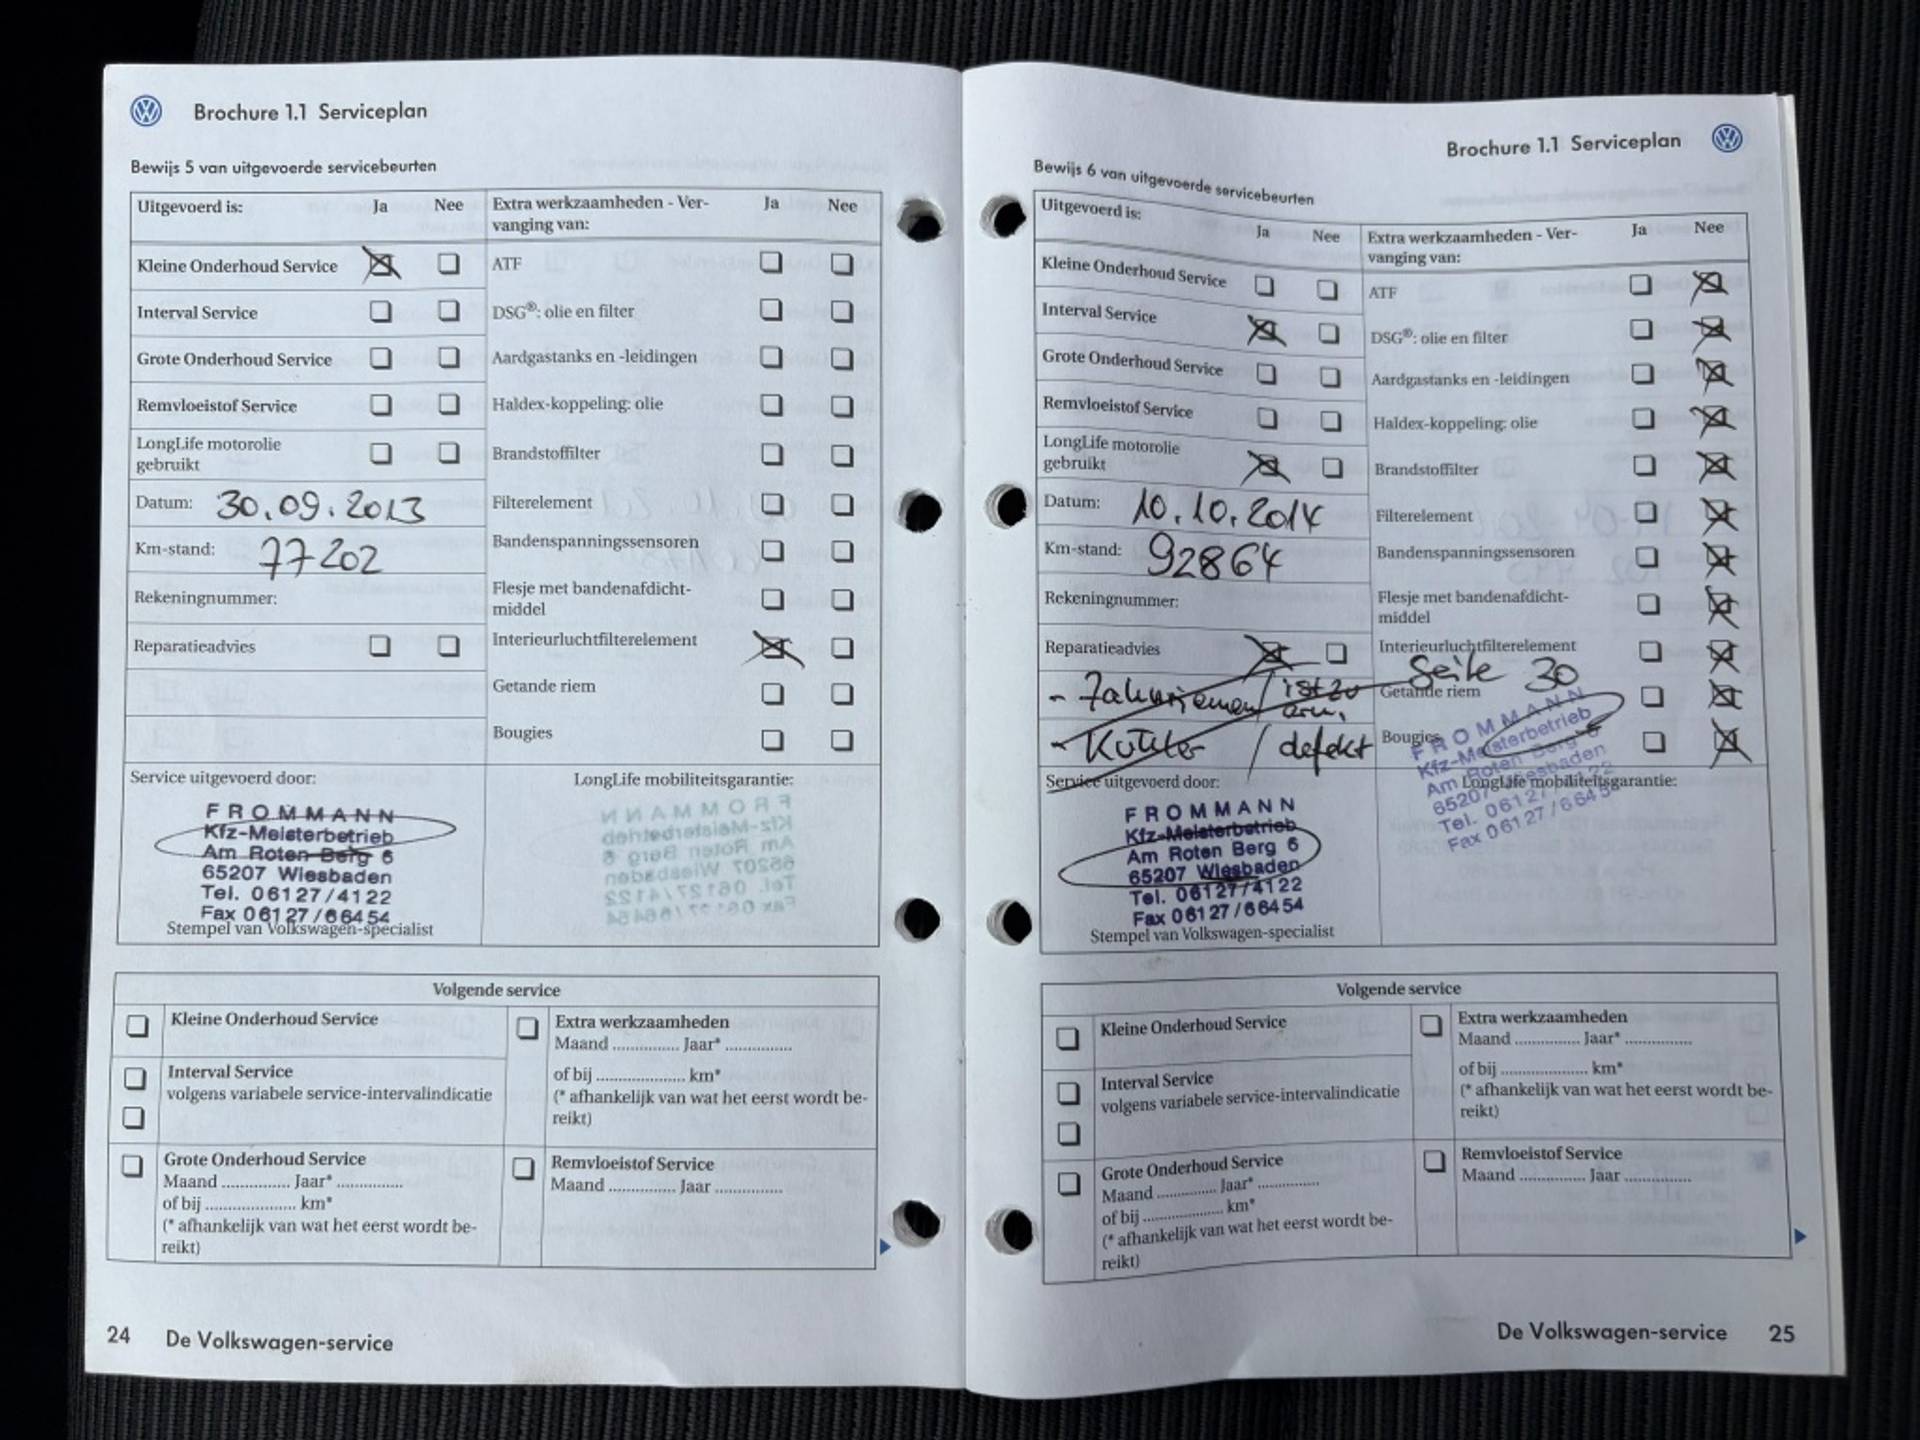 Brochure 1.1 Serviceplan
Bewijs 5 van uitgevoerde servicebeurten
Uitgevoerd is: Ja Nee
Extra werkzaamheden - Ver-
vanging van: Ja Nee
Kleine Onderhoud Service
ATF
Interval Service
DSG®: olie en filter
Grote Onderhoud Service
Aardgastanks en -leidingen
Remvloeistof Service
Haldex-koppeling: olie
LongLife motorolie
gebruikt
Brandstoffilter
Datum: 30.09.2013
Filterelement
Km-stand: 77202
Bandenspanningssensoren
Rekeningnummer:
Flesje met bandenafdicht-
middel
Reparatieadvies
Interieurluchtfilterelement
Getande riem
Bougies
Service uitgevoerd door:
LongLife mobiliteitsgarantie:
FROMMANN
Kfz-Meisterbetrieb
Am Roten Berg 6
65207 Wiesbaden
Tel. 06127/4122
Fax 06127/66454
Stempel van Volkswagen-specialist
Volgende service
Kleine Onderhoud Service
Interval Service
volgens variabele service-intervalindicatie
Grote Onderhoud Service
Maand .............. Jaar* ..............
of bij ................... km*
(* afhankelijk van wat het eerst wordt be-
reikt)
Extra werkzaamheden
Maand .............. Jaar* ..............
of bij ................... km*
(* afhankelijk van wat het eerst wordt be-
reikt)
Remvloeistof Service
Maand .............. Jaar ..............
24 De Volkswagen-service
Brochure 1.1 Serviceplan
Bewijs 6 van uitgevoerde servicebeurten
Uitgevoerd is: Ja Nee
Extra werkzaamheden - Ver-
vanging van: Ja Nee
Kleine Onderhoud Service
ATF
Interval Service
DSG®: olie en filter
Grote Onderhoud Service
Aardgastanks en -leidingen
Remvloeistof Service
Haldex-koppeling: olie
LongLife motorolie
gebruikt
Brandstoffilter
Datum: 10.10.2014
Filterelement
Km-stand: 92864
Bandenspanningssensoren
Rekeningnummer:
Flesje met bandenafdicht-
middel
Reparatieadvies
Interieurluchtfilterelement
Seite 30
- Zahnriemen / ist zu
Getande riem
- Kühler / defekt
Bougies
FROMMANN
Kfz-Meisterbetrieb
Am Roten Berg 6
65207 Wiesbaden
Tel. 06127/4122
Fax 06127/66454
Service uitgevoerd door:
LongLife mobiliteitsgarantie:
FROMMANN
Kfz-Meisterbetrieb
Am Roten Berg 6
65207 Wiesbaden
Tel. 06127/4122
Fax 06127/66454
Stempel van Volkswagen-specialist
Volgende service
Kleine Onderhoud Service
Interval Service
volgens variabele service-intervalindicatie
Grote Onderhoud Service
Maand .............. Jaar* ..............
of bij ................... km*
(* afhankelijk van wat het eerst wordt be-
reikt)
Extra werkzaamheden
Maand .............. Jaar* ..............
of bij ................... km*
(* afhankelijk van wat het eerst wordt be-
reikt)
Remvloeistof Service
Maand .............. Jaar ..............
De Volkswagen-service 25